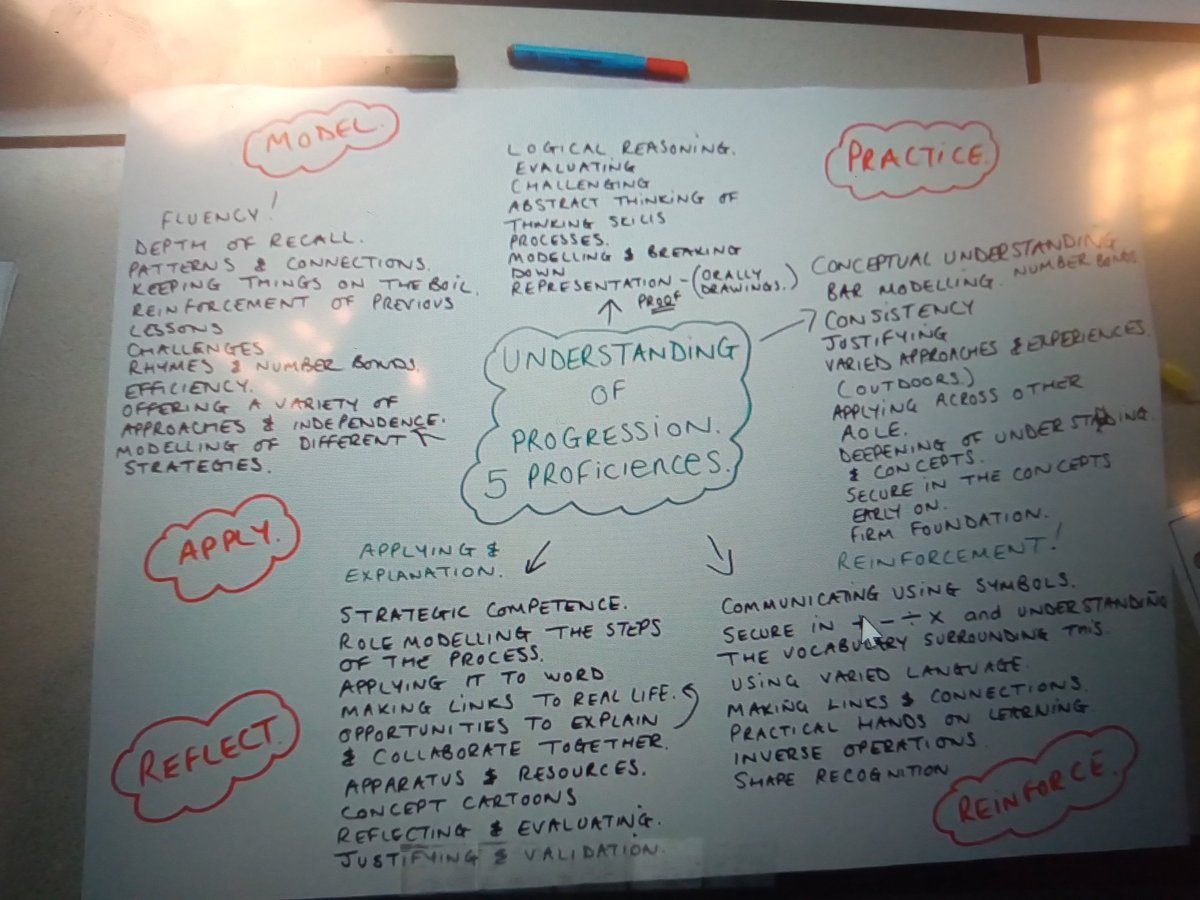 MODEL.
FLUENCY!
DEPTH OF RECALL.
PATTERNS & CONNECTIONS.
KEEPING THINGS ON THE BOIL.
REINFORCEMENT OF PREVIOUS
LESSONS
CHALLENGES
RHYMES & NUMBER BONDS.
EFFICIENCY.
OFFERING A VARIETY OF
APPROACHES & INDEPENDENCE.
MODELLING OF DIFFERENT
STRATEGIES.
LOGICAL REASONING.
EVALUATING
CHALLENGING
ABSTRACT THINKING OF
THINKING SKILLS
PROCESSES.
MODELLING & BREAKING
DOWN
REPRESENTATION - (ORALLY
DRAWINGS.)
PROOF
PRACTICE.
CONCEPTUAL UNDERSTANDING
BAR MODELLING. NUMBER BONDS.
CONSISTENCY
JUSTIFYING
VARIED APPROACHES & EXPERIENCES.
(OUTDOORS.)
APPLYING ACROSS OTHER
AOLE.
DEEPENING OF UNDERSTANDING.
& CONCEPTS.
SECURE IN THE CONCEPTS
EARLY ON.
FIRM FOUNDATION.
UNDERSTANDING
OF
PROGRESSION.
5 PROFICIENCES.
APPLY.
APPLYING &
EXPLANATION.
STRATEGIC COMPETENCE.
ROLE MODELLING THE STEPS
OF THE PROCESS.
APPLYING IT TO WORD
MAKING LINKS TO REAL LIFE.
OPPORTUNITIES TO EXPLAIN
& COLLABORATE TOGETHER.
APPARATUS & RESOURCES.
CONCEPT CARTOONS
REFLECTING & EVALUATING.
JUSTIFYING & VALIDATION.
REFLECT.
REINFORCEMENT!
COMMUNICATING USING SYMBOLS.
SECURE IN + - ÷ x and UNDERSTANDING
THE VOCABULARY SURROUNDING THIS.
USING VARIED LANGUAGE.
MAKING LINKS & CONNECTIONS.
PRACTICAL HANDS ON LEARNING.
INVERSE OPERATIONS.
SHAPE RECOGNITION
REINFORCE.